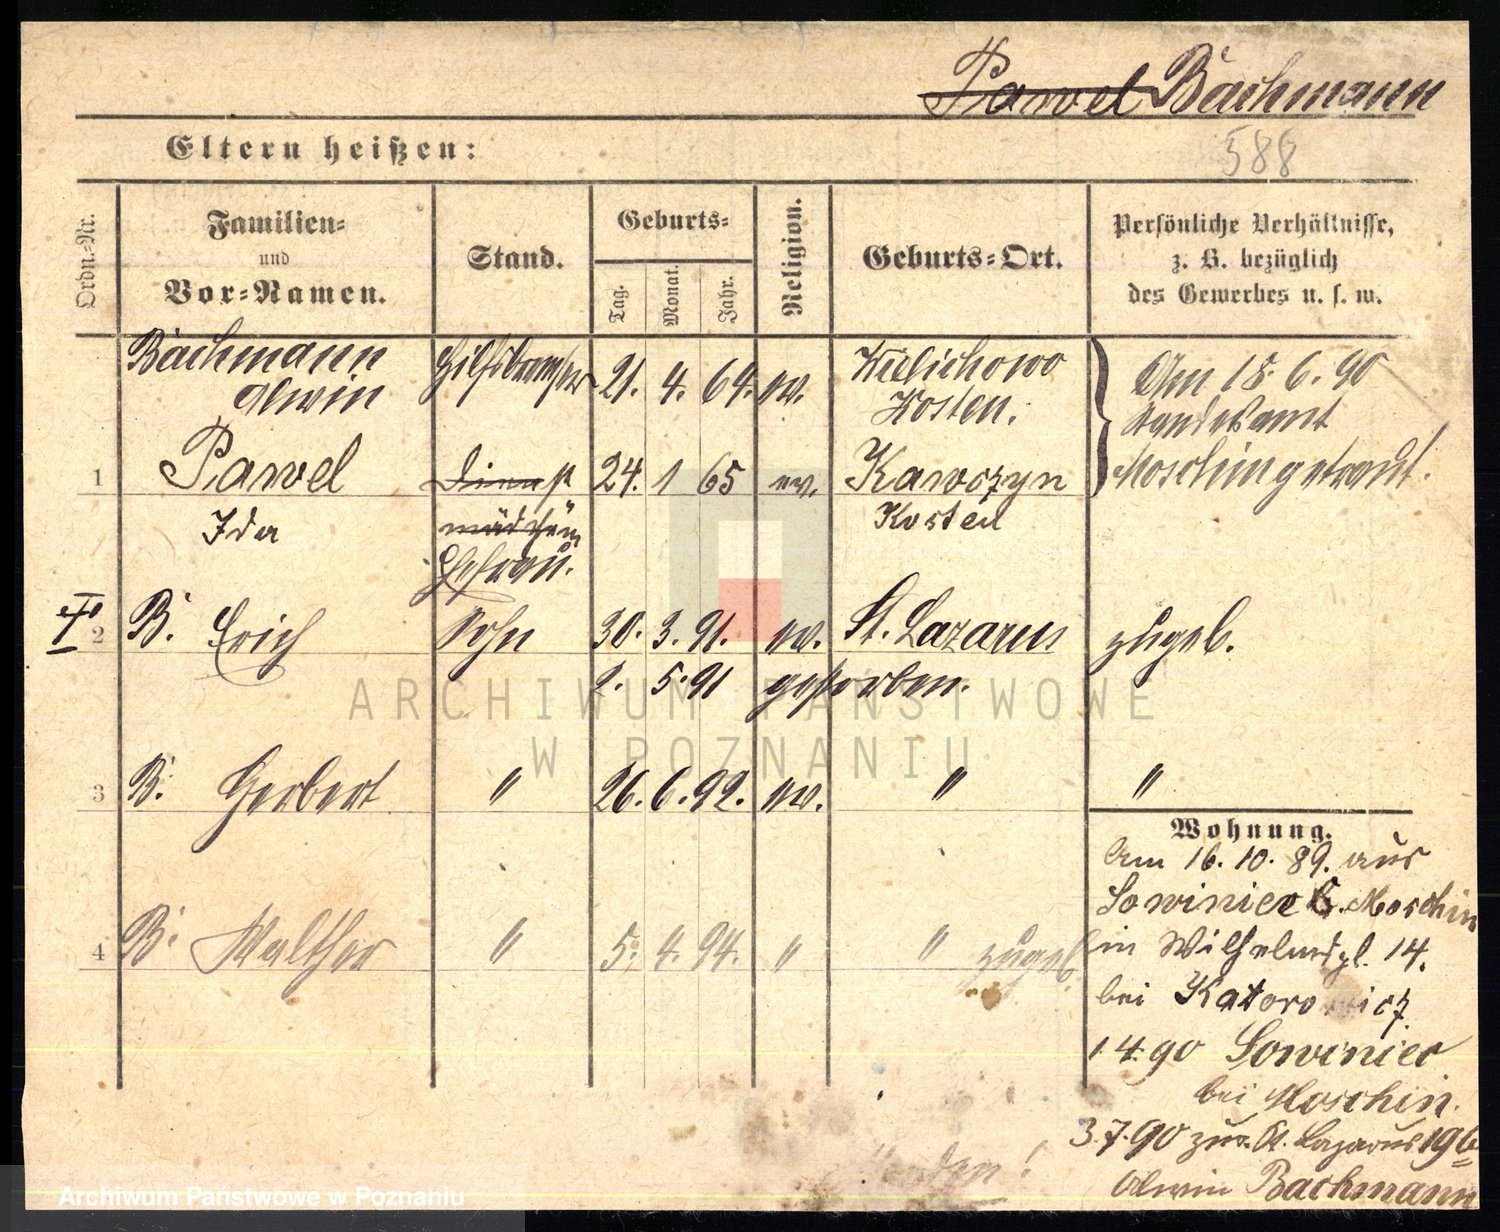 Pawel Bachmann
Eltern heißen:
588
Ordn.-Nr.
Familien-
und
Vor-Namen.
Stand.
Geburts-
Tag.
Monat.
Jahr.
Religion.
Geburts-Ort.
Persönliche Verhältnisse,
z. B. bezüglich
des Gewerbes u. s. w.
Bachmann Hilfsbremser 21. 4. 64. ev. Wielichowo
Alwin Kosten.
Am 18. 6. 90
Standesamt
Moschin getraut.
1 Pawel Dienst 24. 1 65 ev. Kawczyn
Ida mädchen Kosten
Ehefrau.
2 B. Erich Sohn 30. 3. 91. ev. St. Lazarus zugeb.
2. 5. 91 gestorben.
3 B. Herbert " 26. 6. 92. ev. " "
4 B. Walther " 5. 4. 94. " " zugeb.
Wohnung.
Am 16. 10. 89. aus
Sowiniec b. Moschin
in Wilhelmspl. 14.
bei
1 4. 90 Sowiniec
bei Moschin.
3. 7. 90 zur. St. Lazarus 19b
Alwin Bachmann
ARCHIWUM PAŃSTWOWE
W POZNANIU
Archiwum Państwowe w Poznaniu